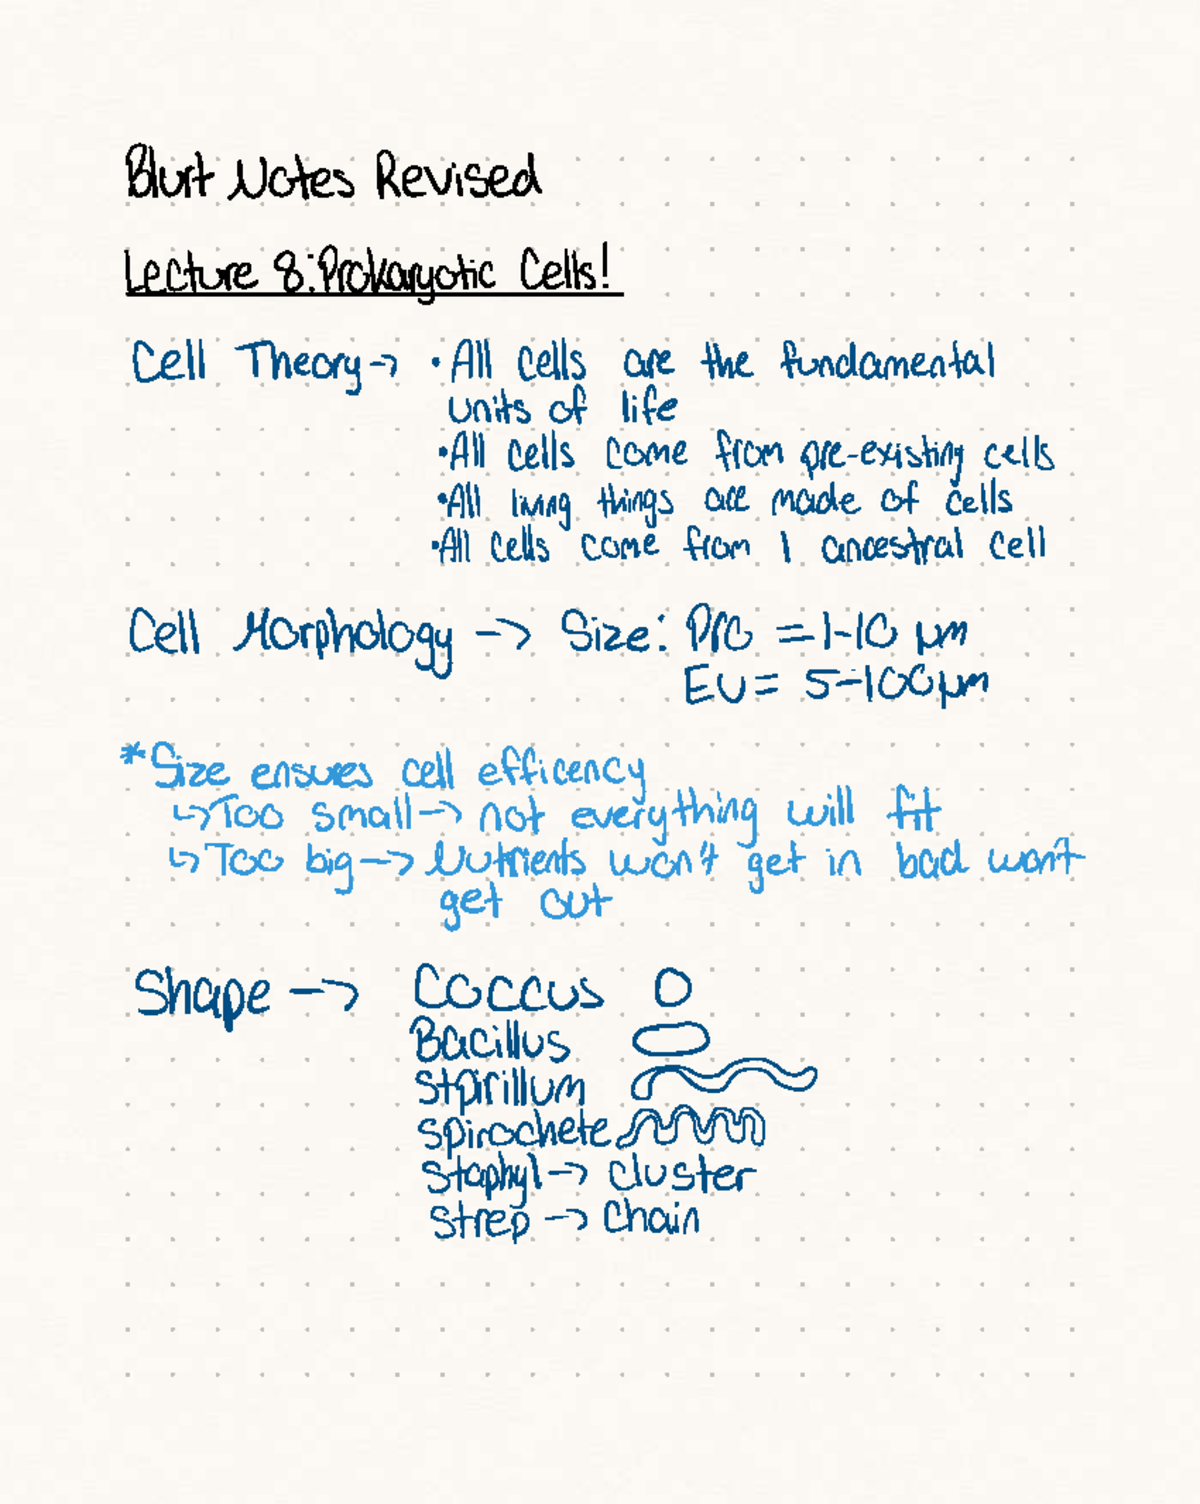 Blurt Notes Revised
Lecture 8: Prokaryotic Cells!
Cell Theory -> • All cells are the fundamental
units of life
• All cells come from pre-existing cells
• All living things are made of cells
• All cells come from 1 ancestral cell
Cell Morphology -> Size: Pro = 1-10 µm
EU = 5-100µm
*Size ensures cell efficency
↳ Too small -> not everything will fit
↳ Too big -> Nutrients won't get in bad won't
get out
Shape -> Coccus
Bacillus
stpirillum
spirochete
staphyl -> cluster
strep -> chain